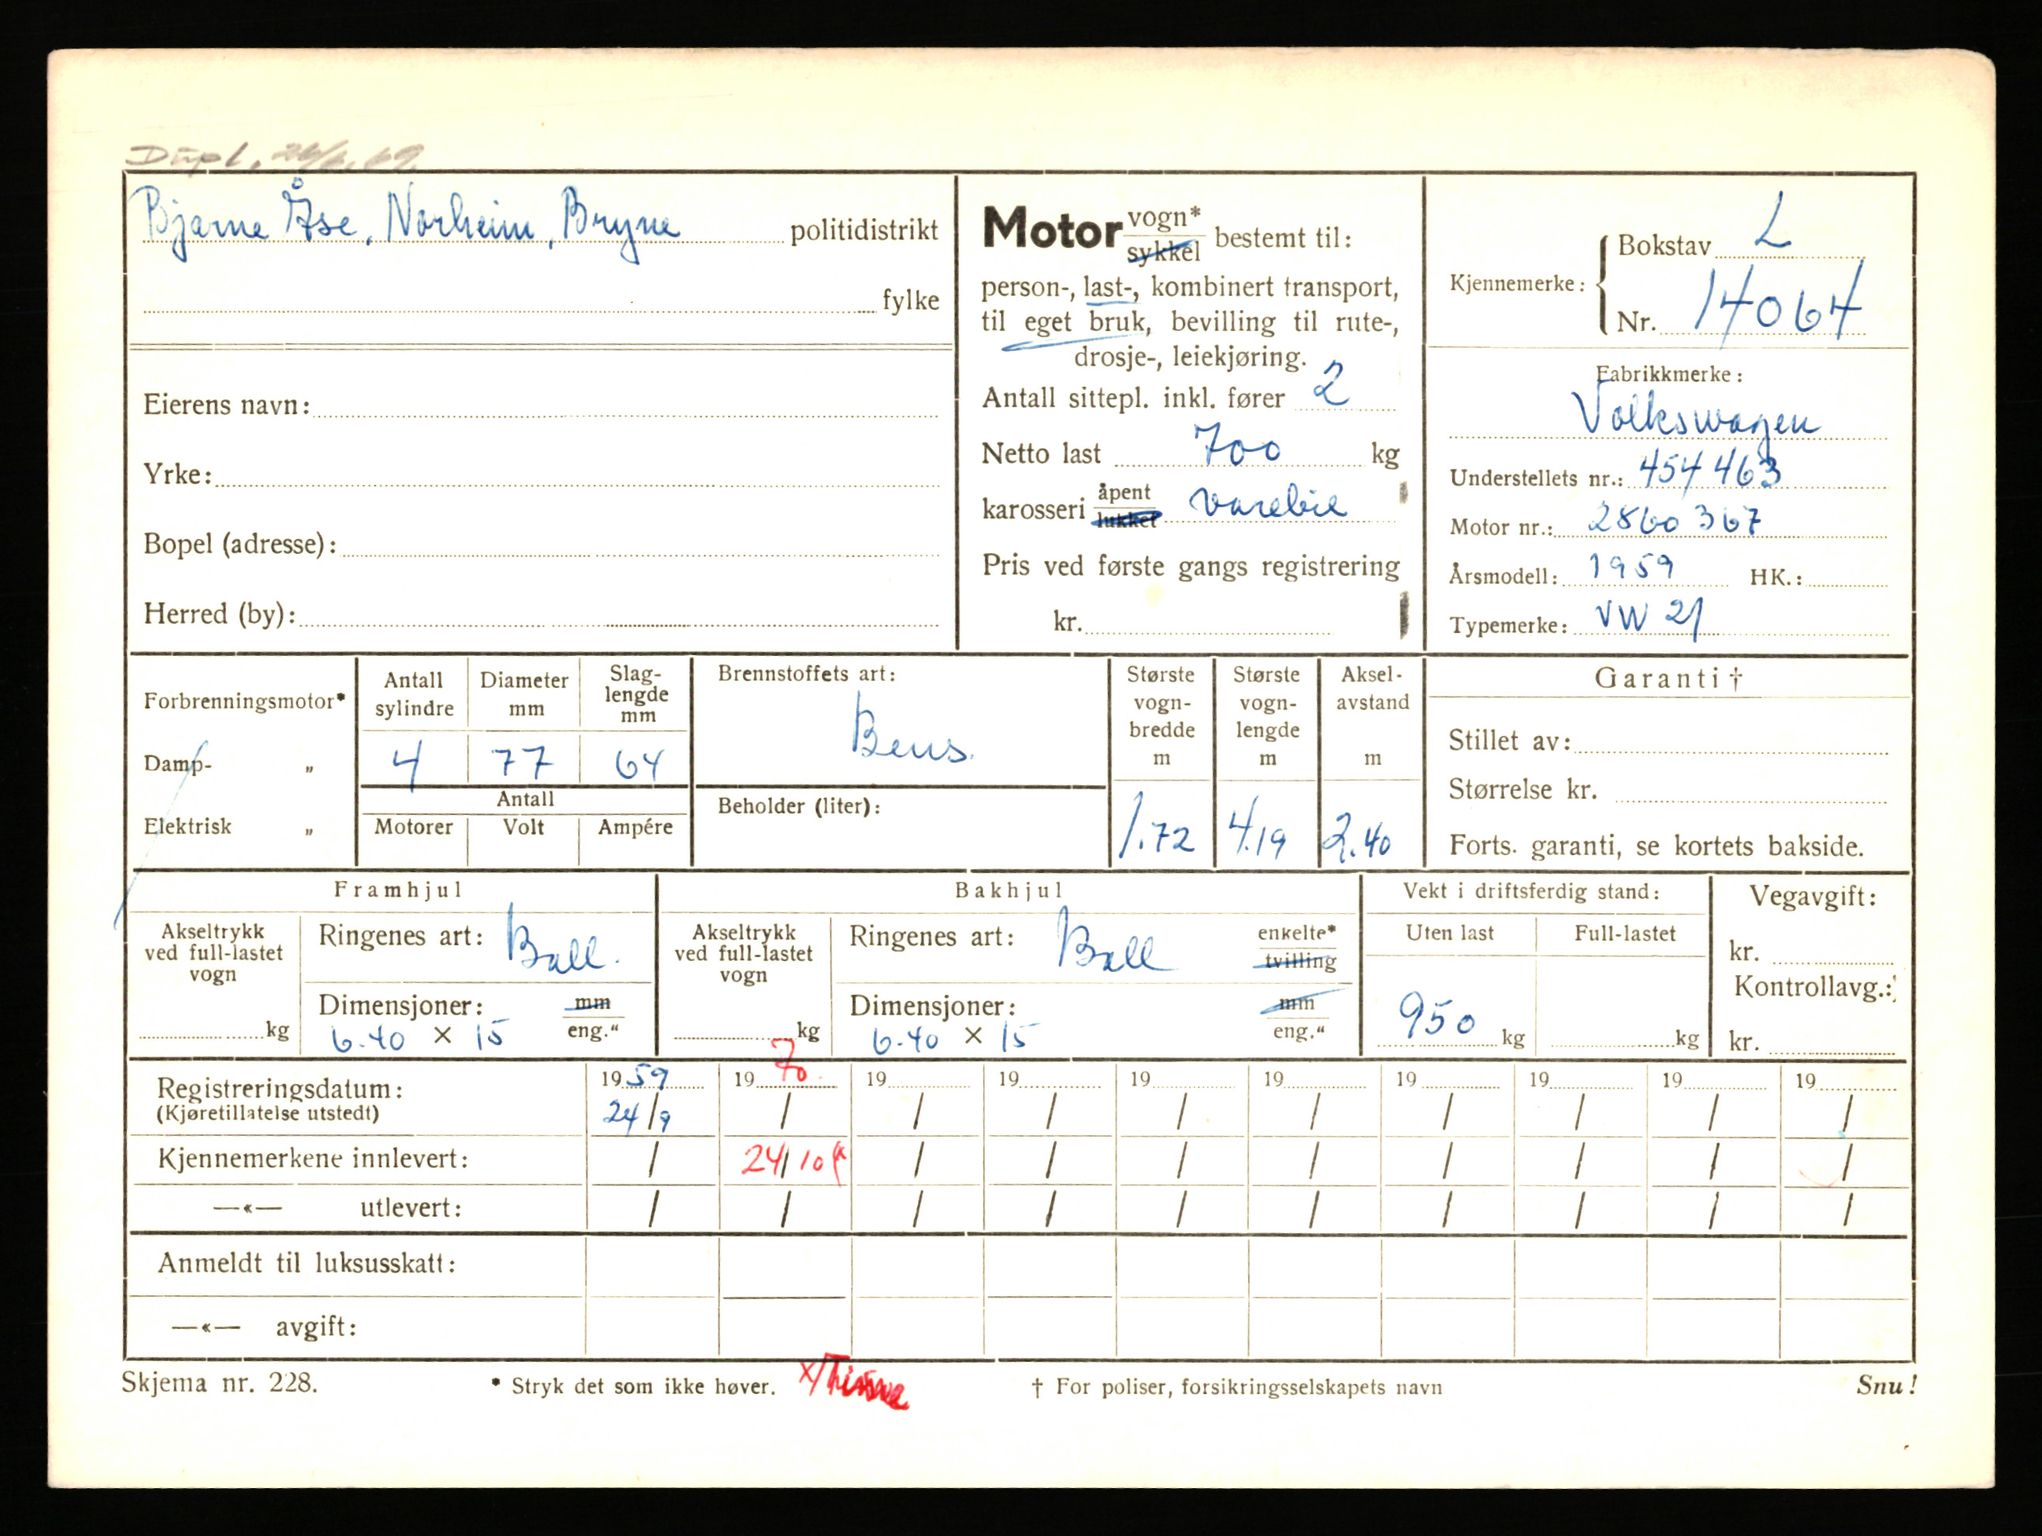 Dupl. 26/6.69.
Bjarne Åse, Norheim, Bryne politidistrikt
fylke
Eierens navn:
Yrke:
Bopel (adresse):
Herred (by):
Motor vogn* sykkel bestemt til:
person-, last-, kombinert transport,
til eget bruk, bevilling til rute-,
drosje-, leiekjøring.
Antall sittepl. inkl. fører 2
Netto last 700 kg
karosseri åpent lukket varebil
Pris ved første gangs registrering
kr.
Kjennemerke: Bokstav L
Nr. 14064
Fabrikkmerke:
Volkswagen
Understellets nr.: 454463
Motor nr.: 2860367
Årsmodell: 1959 HK.:
Typemerke: VW 21
Forbrenningsmotor*
Damp- „
Elektrisk „
Antall sylindre Diameter mm Slaglengde mm
4 77 64
Antall
Motorer Volt Ampére
Brennstoffets art:
Bens.
Beholder (liter):
Største vogn-bredde m Største vogn-lengde m Aksel-avstand m
1.72 4.19 2.40
Garanti †
Stillet av:
Størrelse kr.
Forts. garanti, se kortets bakside.
Framhjul
Akseltrykk ved full-lastet vogn
kg
Ringenes art: Ball.
Dimensjoner: mm eng."
6.40 × 15
Bakhjul
Akseltrykk ved full-lastet vogn
kg
Ringenes art: Ball enkelte* tvilling
Dimensjoner: mm eng."
6.40 × 15
Vekt i driftsferdig stand:
Uten last Full-lastet
950 kg kg
Vegavgift:
kr.
Kontrollavg.:
kr.
Registreringsdatum: 1959 1970 19 19 19 19 19 19 19 19
(Kjøretillatelse utstedt) 24/9 / / / / / / / / /
Kjennemerkene innlevert: / 24/10 / / / / / / / /
—«— utlevert: / / / / / / / / / /
Anmeldt til luksusskatt:
—«— avgift:
Skjema nr. 228. * Stryk det som ikke høver. † For poliser, forsikringsselskapets navn Snu!